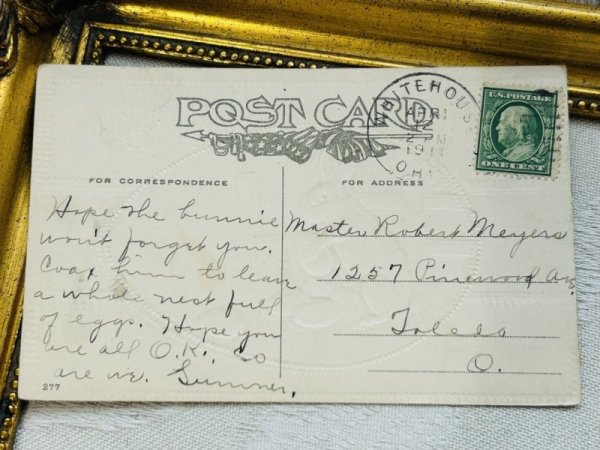 POST CARD
WHITEHOUSE
APR
2 PM
O
U.S. POSTAGE
ONE CENT
FOR CORRESPONDENCE
FOR ADDRESS
Hope the bunnie
won't forget you.
Coax him to leave
a whole nest full
of eggs. Hope you
are all O.K. so
are we. Sumner.
277
Master Robert Meyers
1257 Pinewood Av.
Toledo
O.